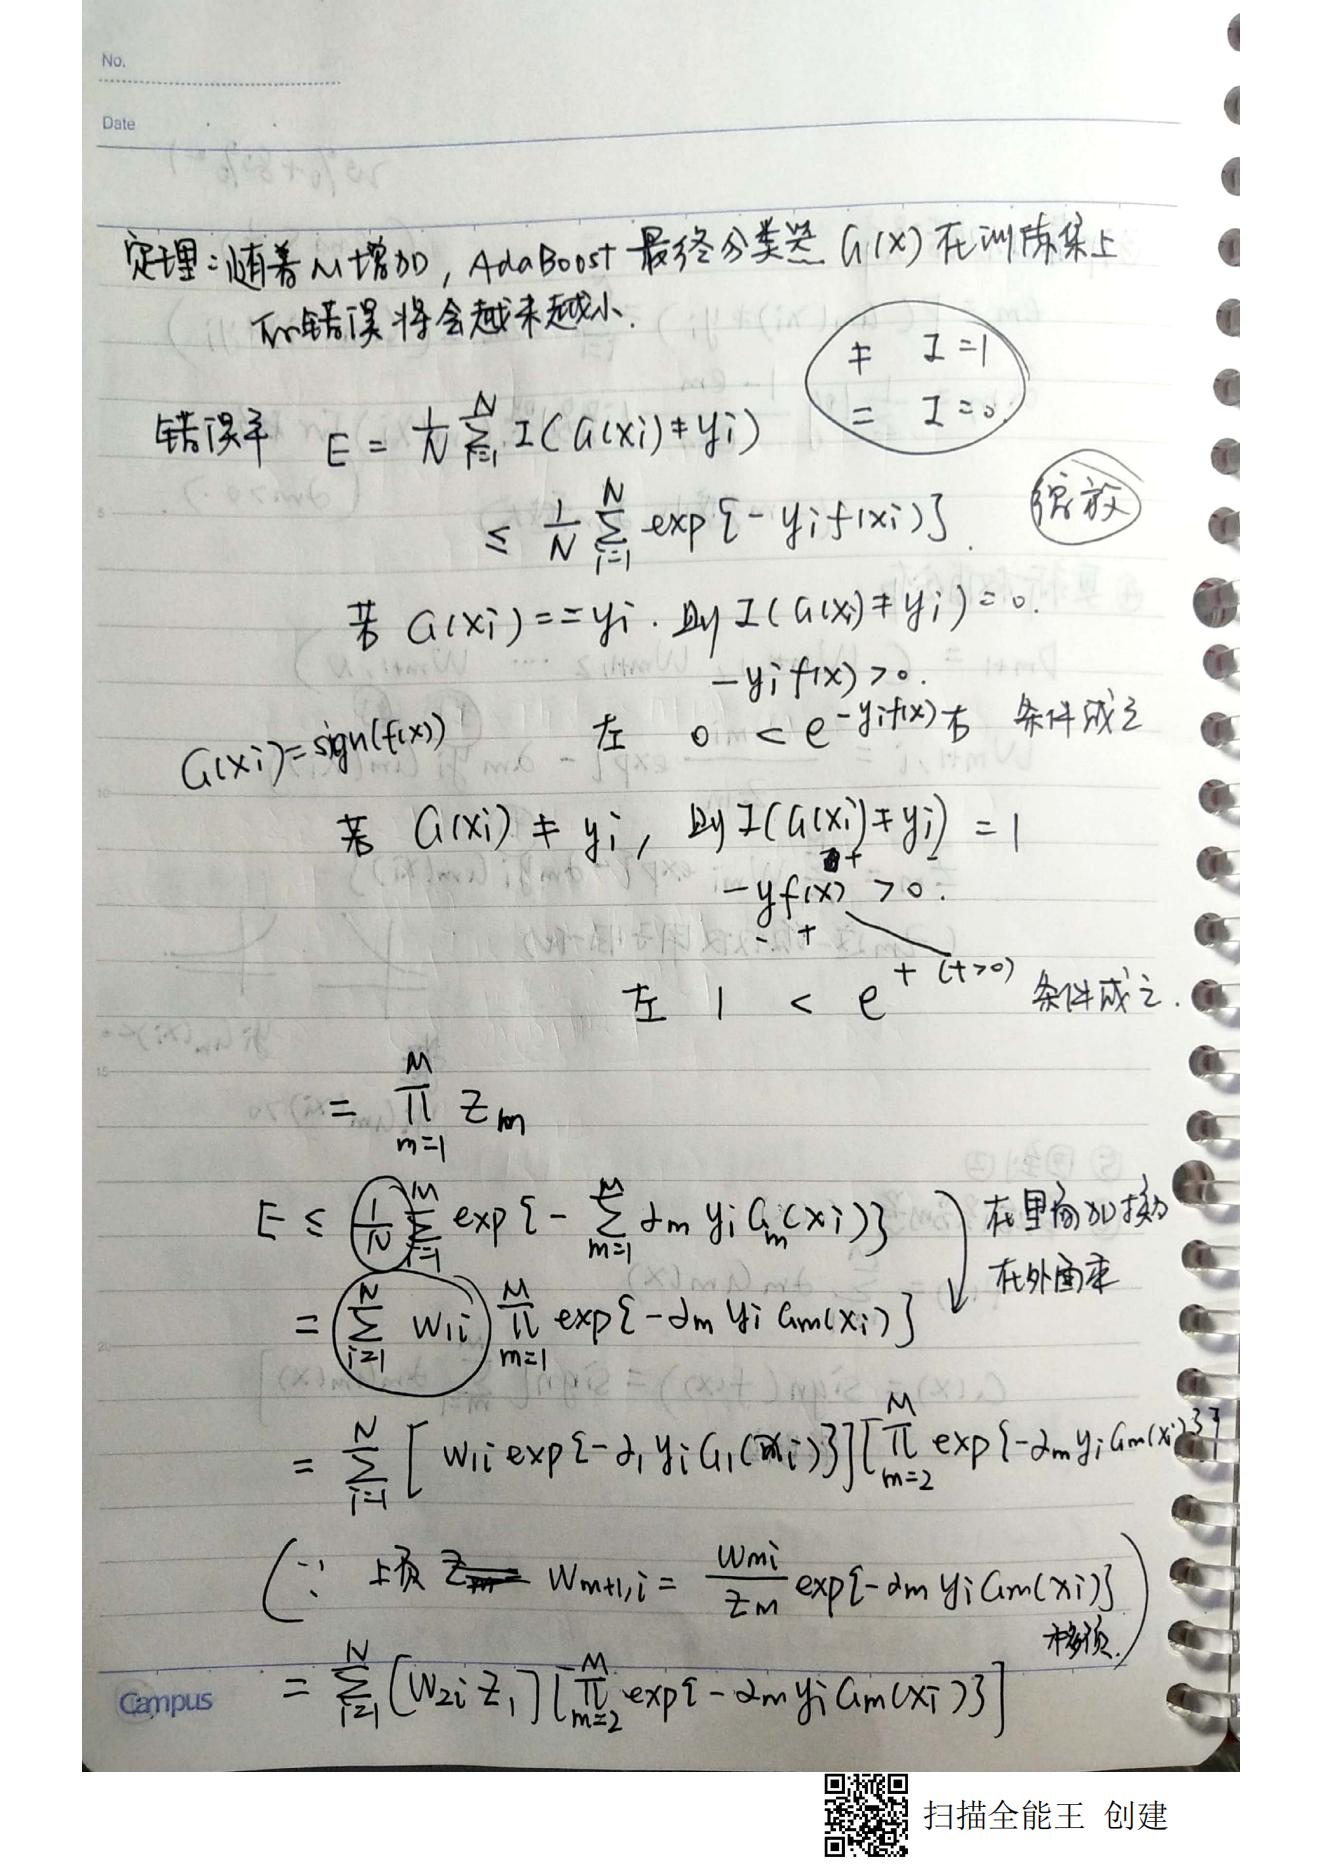 No.
Date
定理:随着M增加,AdaBoost最终分类器 G(x) 在训练集上
的错误将会越来越小.
≠ I=1
= I=0
错误率 E = 1/N Σ_{i=1}^{N} I(G(xi)≠yi)
≤ 1/N Σ_{i=1}^{N} exp{-yif(xi)}.
缩放
若 G(xi)==yi. 则 I(G(xi)≠yi)=0.
-yif(x)>0.
G(xi)=sign(f(x))
左 0 < e^{-yif(x)} 右 条件成立
若 G(xi)≠yi, 则 I(G(xi)≠yi)=1
+ -
-yf(x) >0.
- +
左 1 < e^{+ (+>0)} 条件成立.
= Π_{m=1}^{M} Zm
E ≤ 1/N Σ_{i=1}^{M} exp{-Σ_{m=1}^{M} αm yi Gm(xi)} 在里面加移
= Σ_{i=1}^{N} w1i Π_{m=1}^{M} exp{-αm yi Gm(xi)} 在外面乘
= Σ_{i=1}^{N} [w1i exp{-α1 yi G1(xi)}][Π_{m=2}^{M} exp{-αm yi Gm(xi)}]
(∵ 上页 Wm+1,i = wmi/Zm exp{-αm yi Gm(xi)}
移项.)
= Σ_{i=1}^{N} [W2i Z1][Π_{m=2}^{M} exp{-αm yi Gm(xi)}]
Campus
扫描全能王 创建